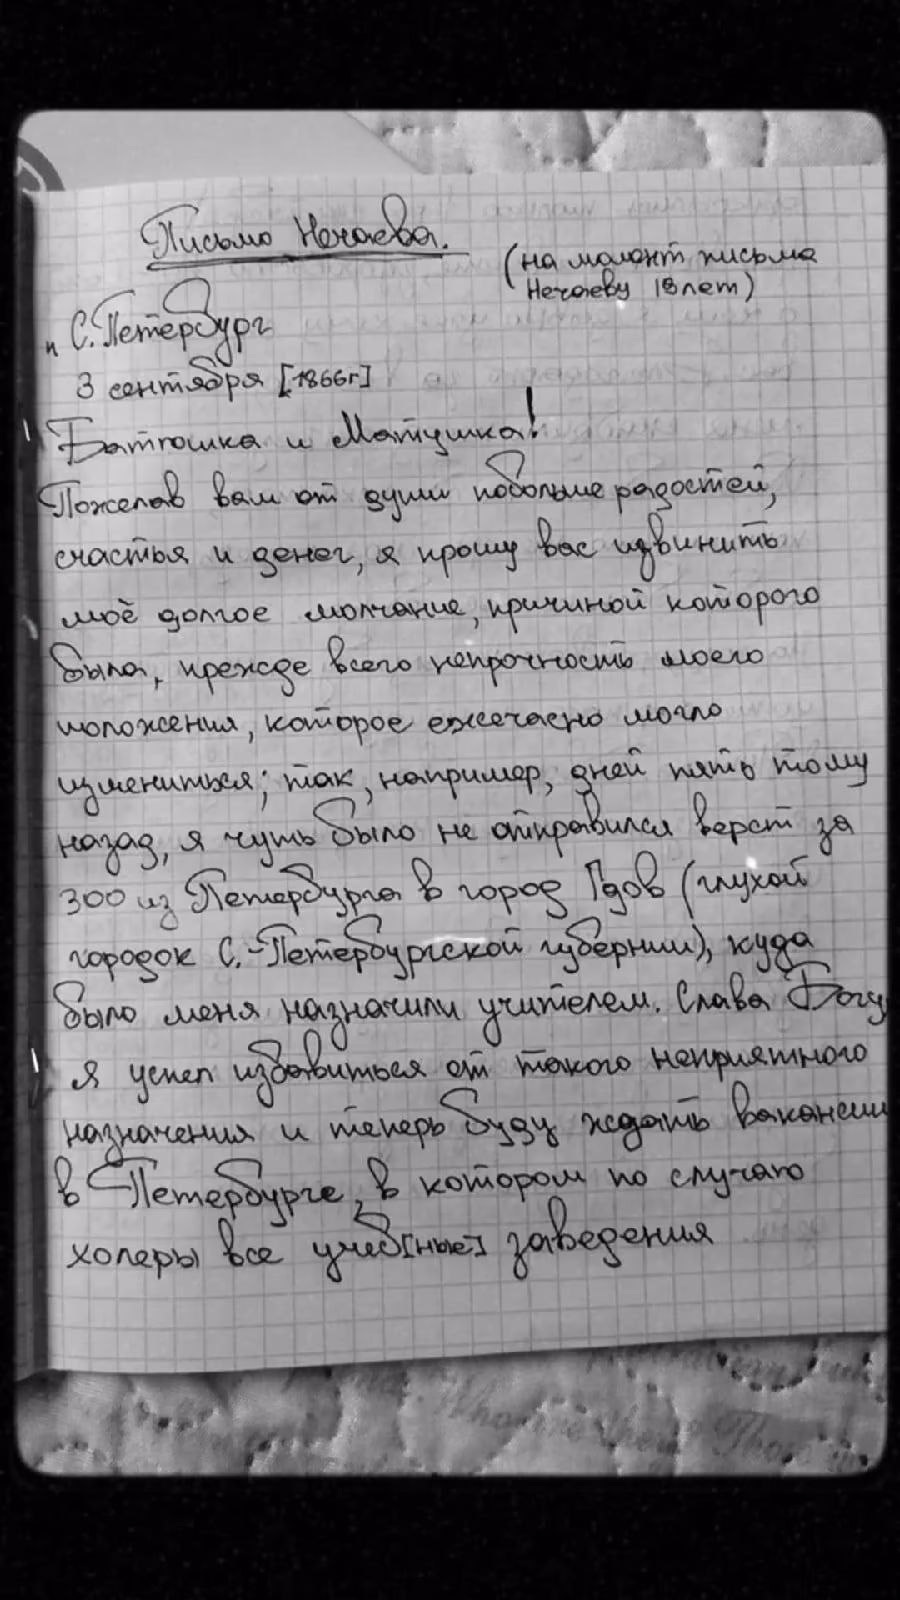 Письмо Нечаева.
(на момент письма
Нечаеву 18 лет)
С. Петербург
3 сентября [1866г]
Батюшка и Матушка!
Пожелав вам от души побольше радостей,
счастья и денег, я прошу вас извинить
моё долгое молчание, причиной которого
была, прежде всего непрочность моего
положения, которое ежечасно могло
измениться; так, например, дней пять тому
назад, я чуть было не отправился верст за
300 из Петербурга в город Гдов (глухой
городок С.-Петербургской губернии), куда
было меня назначили учителем. Слава Богу,
я успел избавиться от такого неприятного
назначения и теперь буду ждать вакансии
в Петербурге, в котором по случаю
холеры все учеб[ные] заведения